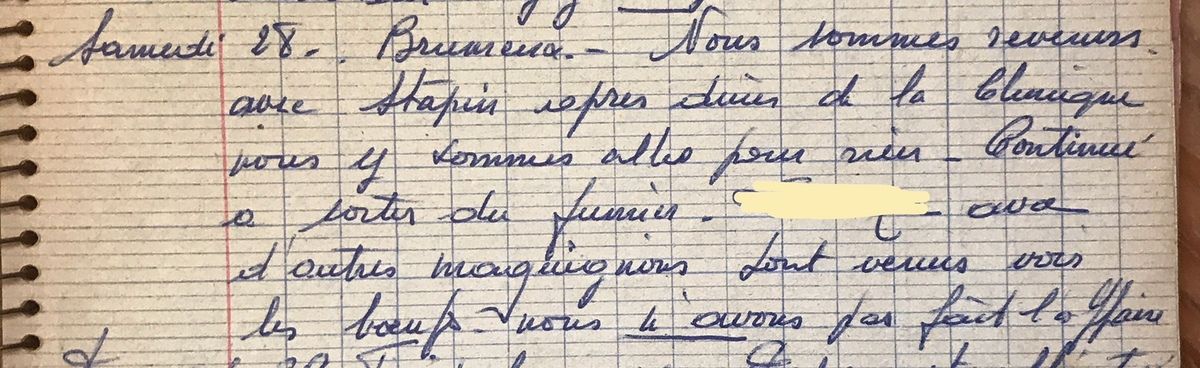 Samedi 28. Brumeux. - Nous sommes revenus
avec Stapin apres diner de la Clinique
nous y sommes allés pour rien - Continué
a sortir du fumier. avec
d'autres maquignons sont venus voir
les boeufs - nous n'avons pas fait l'affaire